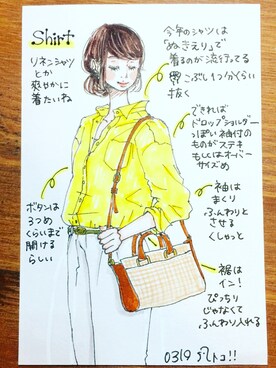 Shirt
リネンシャツ
とか
爽やかに
着たいね
今年のシャツは
「ぬきえり」で
着るのが流行ってる
こぶし1つ分くらい
抜く
できれば
ドロップショルダー
っぽい袖付の
ものがステキ
もしくはオーバー
サイズめ
袖は
まくり
ふんわりと
させる
くしゃっと
ボタンは
3つめ
くらいまで
開ける
らしい
裾は
イン!
ぴっちり
じゃなくて
ふんわり入れる
0319